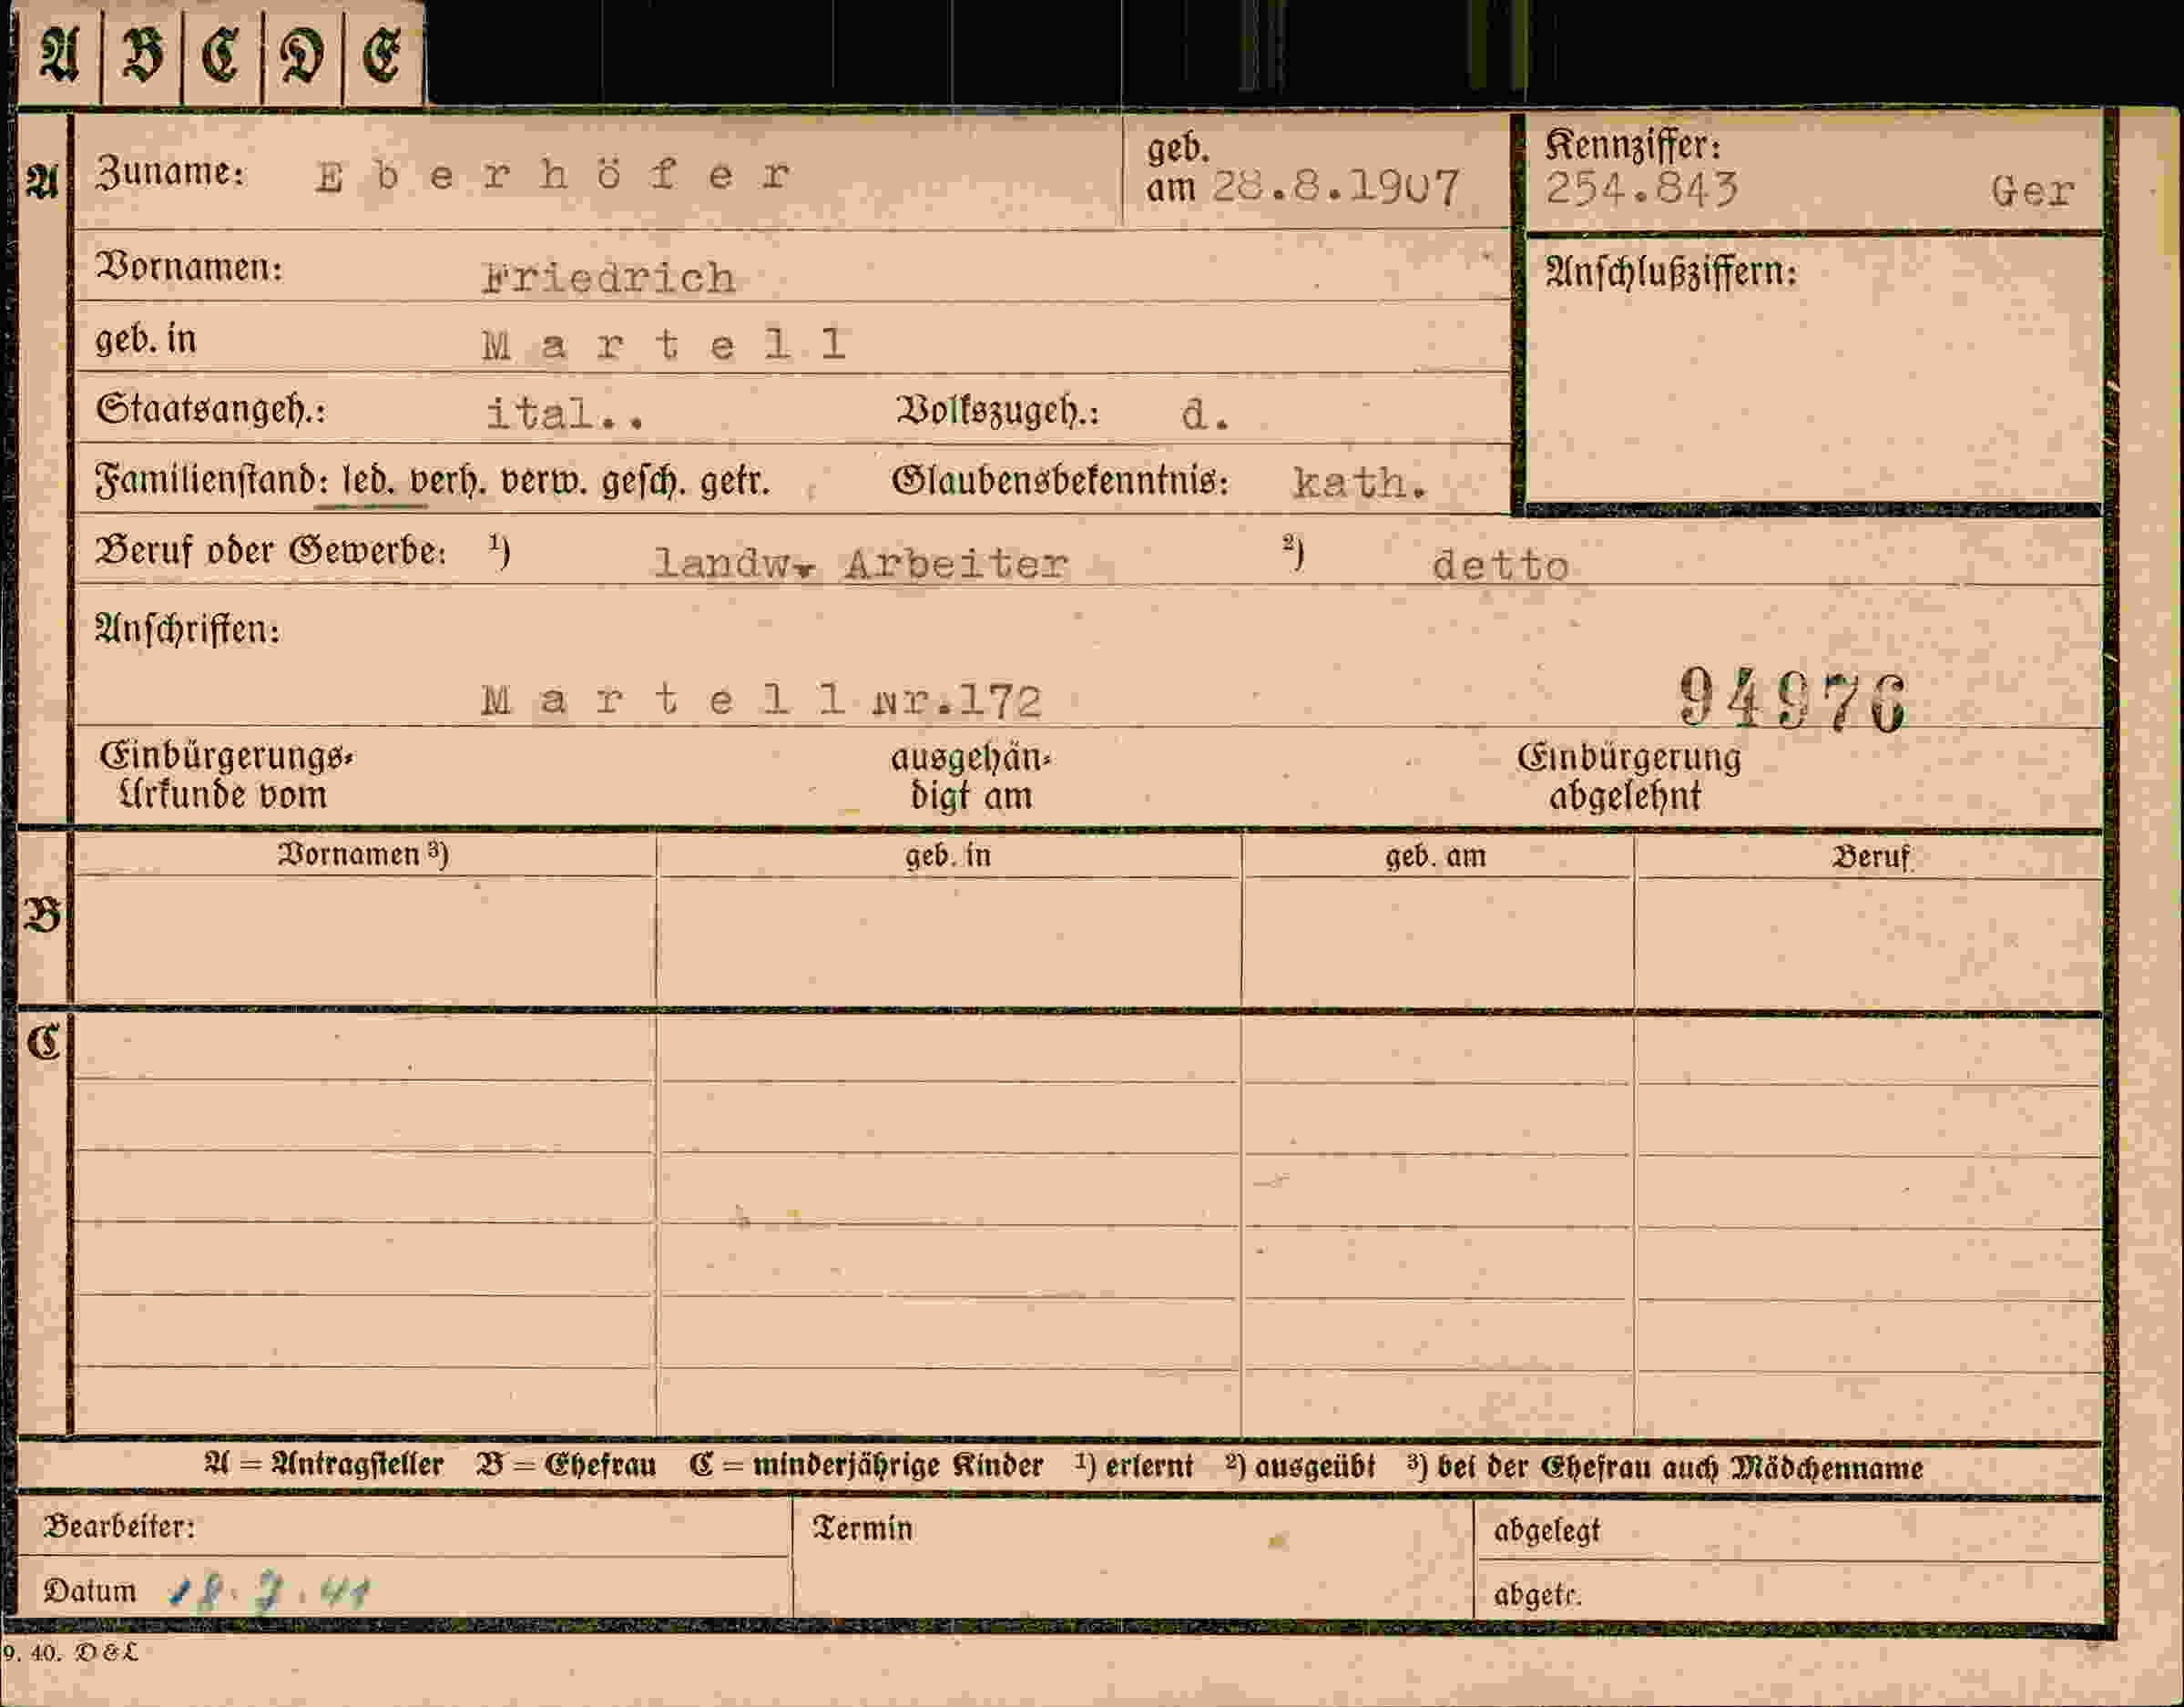 A B C D E
A Zuname: Eberhöfer geb. am 28.8.1907 Kennziffer: 254.843 Ger
Vornamen: Friedrich Anschlußziffern:
geb. in Martell
Staatsangeh.: ital.. Volkszugeh.: d.
Familienstand: led. verh. verw. gesch. getr. Glaubensbekenntnis: kath.
Beruf oder Gewerbe: ¹) landw. Arbeiter ²) detto
Anschriften:
Martell Nr.172 94976
Einbürgerungs- ausgehän- Einbürgerung
Urkunde vom digt am abgelehnt
Vornamen ³) geb. in geb. am Beruf
B
C
A = Antragsteller B = Ehefrau C = minderjährige Kinder ¹) erlernt ²) ausgeübt ³) bei der Ehefrau auch Mädchenname
Bearbeiter: Termin abgelegt
Datum 18.7.41 abgetr.
9. 40. D & L